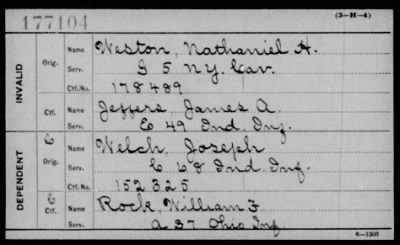 177104 (3-H-4)
INVALID
Orig. Name Weston, Nathaniel H.
Serv. G 5 N.Y. Cav.
Ctf. No. 178489
Ctf. Name Jeffers, James A.
Serv. E 49 Ind. Inf.
DEPENDENT
C Orig. Name Welch, Joseph
Serv. E 68 Ind. Inf.
Ctf. No. 152325
C Ctf. Name Rock, William F.
Serv. A 37 Ohio Inf
6-1305